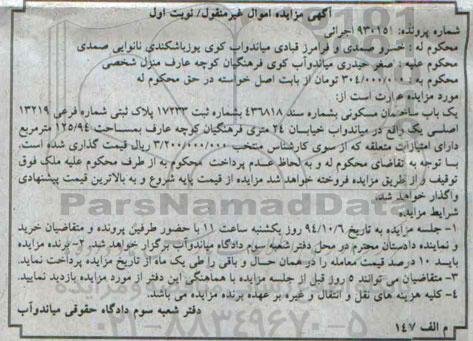 آگهی مزایده اموال غیرمنقول/ نوبت اول
شماره پرونده: ۹۳۰۱۵۱ اجرائی
محکوم له : خسرو صمدی و فرامرز قبادی میاندواب کوی پورباشکندی نانوایی صمدی
محکوم علیه : صفر حیدری میاندوآب کوی فرهنگیان کوچه عارف منزل شخصی
محکوم به : ۳۰۴/۰۰۰/۰۰۰ تومان از بابت اصل خواسته در حق محکوم له
مورد مزایده عبارت است از:
یک باب ساختمان مسکونی بشماره سند ۴۳۶۸۱۸ بشماره ثبت ۱۷۲۳۳ پلاک ثبتی شماره فرعی ۱۳۲۱۹
اصلی یک واقع در میاندواب خیابان ۲۴ متری فرهنگیان کوچه عارف بمساحت ۱۲۵/۹۴ مترمربع
دارای امتیازات متعلقه که از سوی کارشناس منتخب ۳/۲۰۰/۰۰۰/۰۰۰ ریال قیمت گذاری شده است.
بنا توجه به تقاضای محکوم له و به لحاظ عدم پرداخت محکوم به از طرف محکوم علیه ملک فوق
توقیف و از طریق مزایده فروخته خواهد شد مزایده از قیمت پایه شروع و به بالاترین قیمت پیشنهادی
واگذار خواهد شد.
شرایط مزایده
۱- جلسه مزایده به تاریخ ۹۴/۱۰/۶ روز یکشنبه ساعت ۱۱ با حضور طرفین پرونده و متقاضیان خرید
و نماینده دادستان محترم در محل دفتر شعبه سوم دادگاه میاندوآب برگزار خواهد شد. ۲- برنده مزایده
بایسد ۱۰ درصد قیمت معامله را در همان حسال و باقی را طی یک ماه از تاریخ مزایده پرداخت نماید.
۳- متقاضیان می توانند ۵ روز قبل از جلسه مزایده با هماهنگی این دفتر از مورد مزایده بازدید نمایند.
۴- کلیه هزینه های نقل و انتقال و غیره بر عهده برنده مزایده می باشد.
دفتر شعبه سوم دادگاه حقوقی میاندوآب
م الف ۱۴۷
ParsNamadData
۰۲۱-۸۸۳۴۹۶۷۰-۵